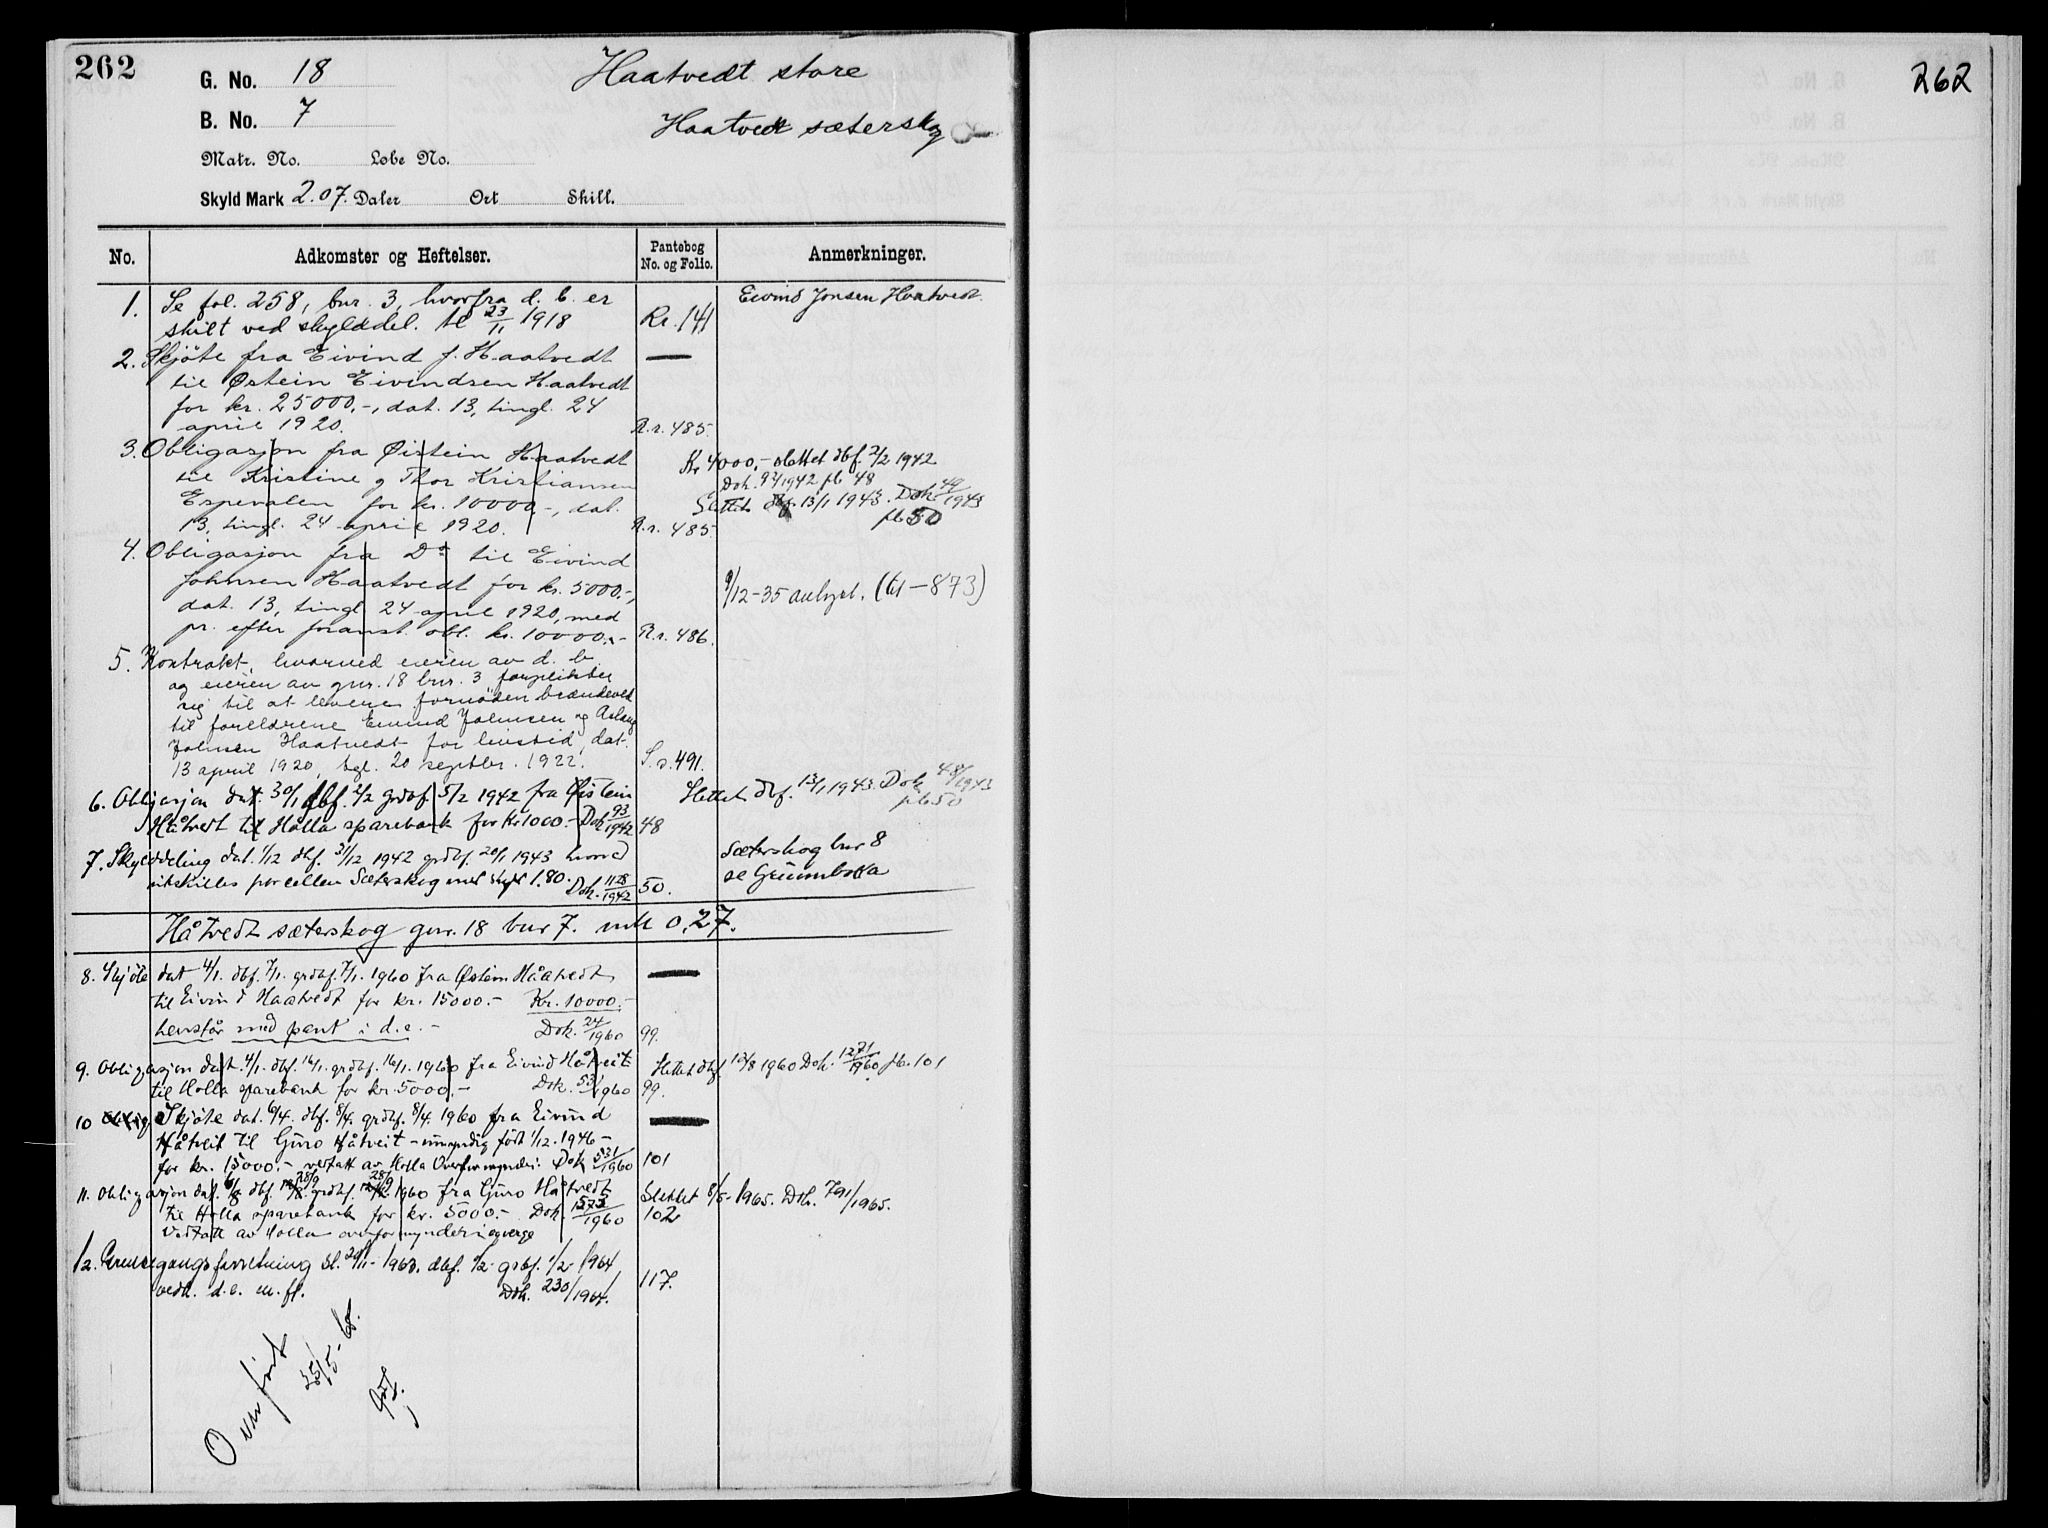 262
G. No. 18
Haatvedt store
B. No. 7
Haatvedt sæterskog
Matr. No. Løbe No.
Skyld Mark 2.07. Daler Ort Skill.
No. Adkomster og Heftelser. Pantebog No. og Folio. Anmerkninger.
1. Se fol. 258, bnr. 3, hvorfra d. b. er Eivind Jonsen Haatvedt.
skilt ved skylddel. tl 23/11 1918 R.r. 141
2. Skjöte fra Eivind J. Haatvedt —
til Østein Eivindsen Haatvedt
for kr. 25000.-, dat. 13, tingl. 24
april 1920. R.r. 485.
3. Obligasjon fra Øistein Haatvedt Kr 4000,- slettet dbf. 2/2 1942
til Kristine og Thor Kristiansen Dok. 92/1942 pb 48
Espevalen for kr. 10000.-, dat. Slettet dbf. 13/1 1943. Dok 49/1943
13, tingl. 24 april 1920. R.r. 485. pb 50
4. Obligasjon fra Do til Eivind
Johnsen Haatvedt for kr. 5000.-, 9/12-35 avlyst. (tl — 873)
dat. 13, tingl 24 april 1920, med
pr. efter foranst. obl. kr. 10000.- R.r. 486.
5. Kontrakt, hvorved eieren av d. b
og eieren av gnr. 18 bnr. 3 forplikter
sig til at levere fornöden brændeved
til foreldrene Eivind Johnsen og Aslaug
Johnsen Haatvedt for livstid, dat.
13 april 1920, tgl. 20 septbr. 1922. S.r. 491.
6. Obligasjon dat. 30/1 dbf. 2/2 grdbf. 5/2 1942 fra Øistein Slettet dbf. 13/1 1943. Dok 48/1943
Håtvedt til Holla sparebank for kr 1000.- Dok 93/1942 48 pb 50
7. Skylddeling dat. 1/12 dbf. 31/12 1942 grdbf. 20/1 1943 hvorved Sæterskog bnr 8
utskilles parcellen Sæterskog med skyld 1.80. Dok. 1128/1942 50. se Grunnboka
Håtvedt sæterskog gnr. 18 bnr 7. mk 0,27.
8. Skjöte dat 4/1. dbf. 7/1. grdbf. 7/1. 1960 fra Østein Håatvedt —
til Eivind Haatvedt for kr. 15000.- Kr. 10000.-
henstår med pant i d.e. - Dok. 24/1960 99.
9. Obligasjon dat. 4/1. dbf. 16/1. grdbf. 16/1. 1960 fra Eivind Håtveit Slettet dbf. 12/8 1960 Dok. 1271/1960 pb. 101
til Holla sparebank for kr. 5000.- Dok. 53/1960 99.
10 Oblig Skjöte dat. 6/4. dbf. 8/4. grdbf. 8/4. 1960 fra Eivind —
Håtveit til Guro Håtveit - umyndig född 1/12. 1946 -
for kr. 15000.- vedtatt av Holla Overformynderi. Dok 531/1960 101
11. Obligasjon dat. dbf. 28/9 grdbf. 28/9 1960 fra Guro Håtvedt Slettet 8/5-1965. Dok. 791/1965.
til Holla sparebank for kr. 5000.- Dok. 1573/1960 102
Vedtatt av Holla overformynderi og verge
12. Grensegangsforretning sl. 20/11-1963. dbf. 1/2- grbf. 1/2-1964
vedk. d.e. m.fl. Dok. 230/1964. 117.
Overført
25/5-68.
262